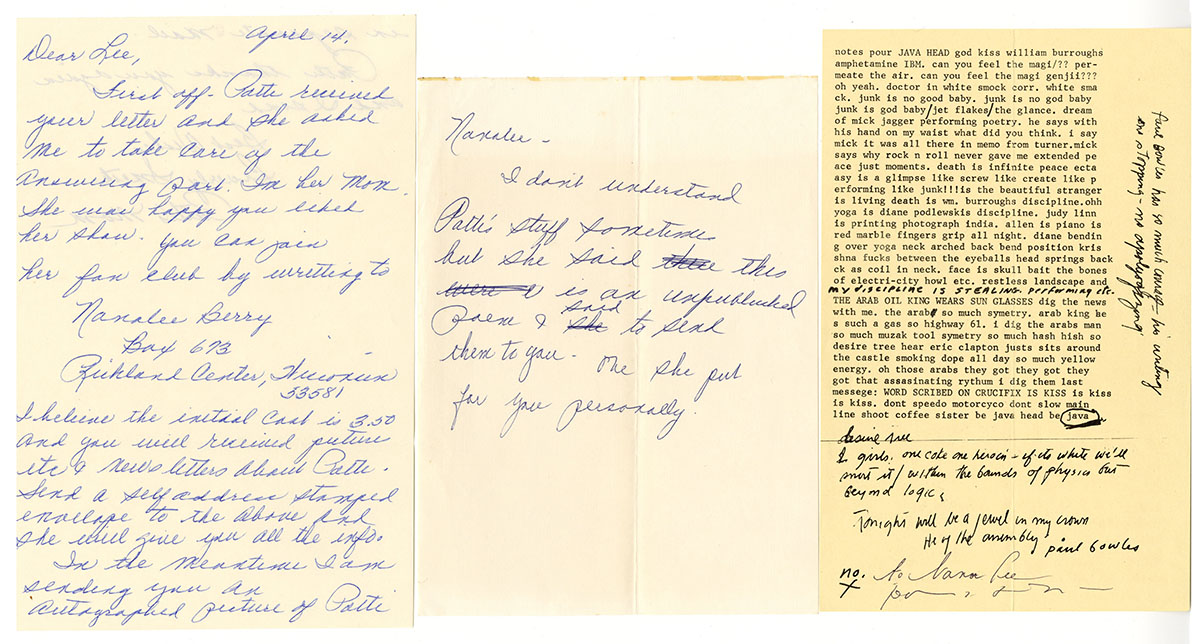 April 14.
Dear Lee,
First off- Patti received
your letter and she asked
me to take care of the
answering part. Im her Mom.
She was happy you liked
her show. you can join
her fan club by writting to
Nanalee Berry
Box 673
Richland Center, Wisconsin
53581
I believe the initial cost is 3.50
and you will received picture
etc & newsletters about Patti.
Send a self address stamped
envelope to the above and
she will give you all the info.
In the meantime I am
sending you an
autographed picture of Patti
Nanalee -
I don't understand
Patti's stuff sometime
but she said this
is an unpublished
poem & said to send
them to you - one she put
for you personally.
notes pour JAVA HEAD god kiss william burroughs
amphetamine IBM. can you feel the magi/?? per-
meate the air. can you feel the magi genjii???
oh yeah. doctor in white smock corr. white sma
ck. junk is no good baby. junk is no god baby
junk is god baby/jet flakes/the glance. dream
of mick jagger performing poetry. he says with
his hand on my waist what did you think. i say
mick it was all there in memo from turner.mick
says why rock n roll never gave me extended pe
ace just moments. death is infinite peace ecta
asy is a glimpse like screw like create like p
erforming like junk!!!is the beautiful stranger
is living death is wm. burroughs discipline.ohh
yoga is diane podlewskis discipline. judy linn
is printing photograph india. allen is piano is
red marble fingers grip all night. diane bendin
g over yoga neck arched back bend position kris
shna fucks between the eyeballs head springs back
ck as coil in neck. face is skull bait the bones
of electri-city howl etc. restless landscape and
my discipline is STEALING. performing etc.
THE ARAB OIL KING WEARS SUN GLASSES dig the news
with me. the arab so much symetry. arab king he
s such a gas so highway 61. i dig the arabs man
so much muzak tool symetry so much hash hish so
desire tree hear eric clapton justs sits around
the castle smoking dope all day so much yellow
energy. oh those arabs they got they got they
got that assasinating rythum i dig them last
messege: WORD SCRIBED ON CRUCIFIX IS KISS is kiss
is kiss. dont speedo motorcyco dont slow main
line shoot coffee sister be java head be java
Paul Bowles has so much courage - his writing
one stopping - no apologyzing
desire tree
2 girls. one coke one heroin - if its white we'll
snort it/ within the bounds of physics but
beyond logic.
Tonight will be a jewel in my crown
He of the assembly paul bowles
no. to Nana Lee